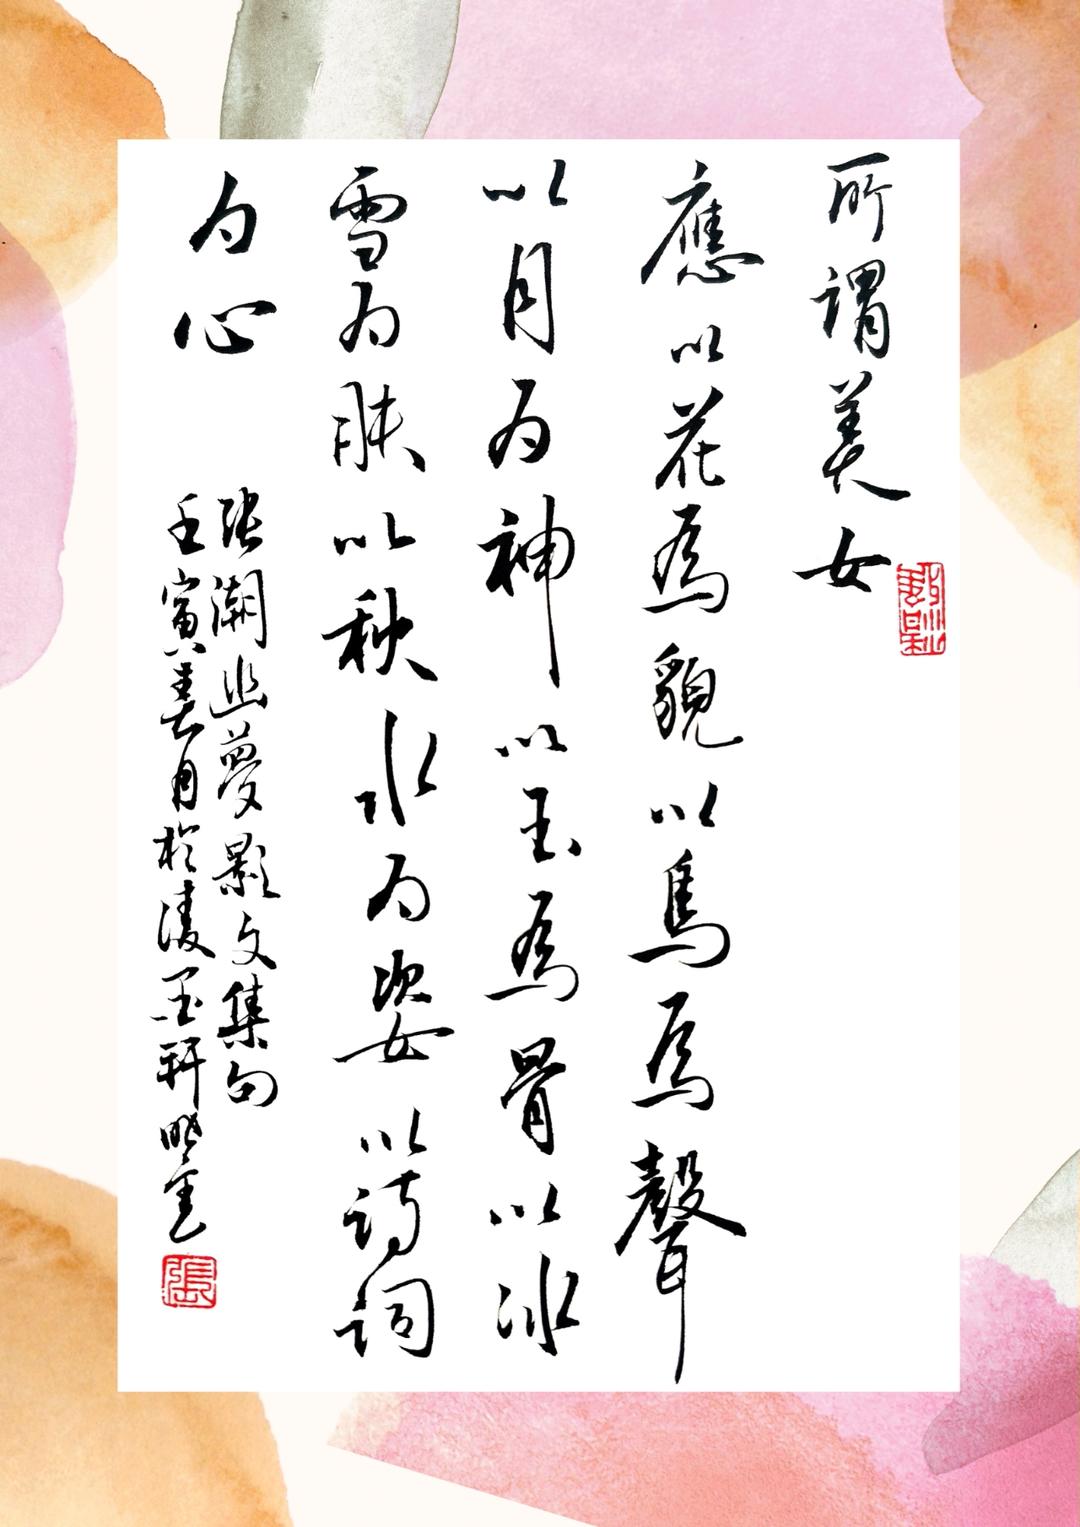 所謂美女
應以花為貌以鳥為聲
以月為神以玉為骨以冰
雪為膚以秋水為姿以詩詞
為心
張潮幽夢影文集句
壬寅春月於凌墨軒
張